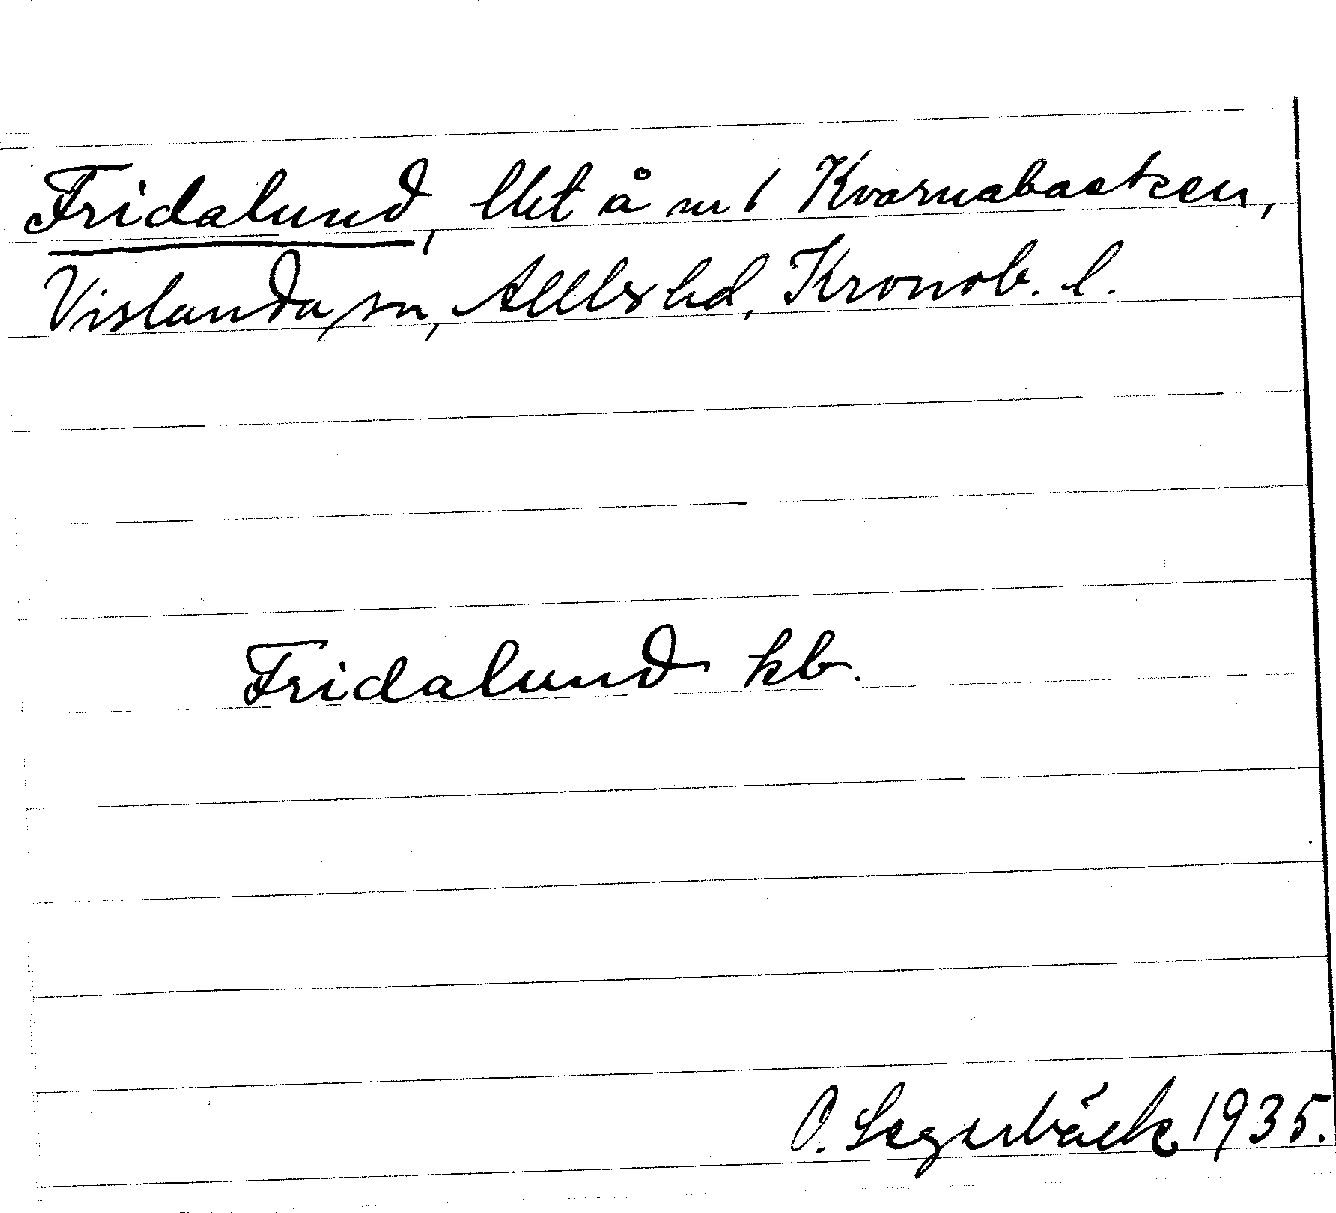 Fridalund, lht å m 1 Kvarnabacken,
Vislanda sn, Allbo hd, Kronob. l.
Fridalund kb.
O. Segerbäck 1935.